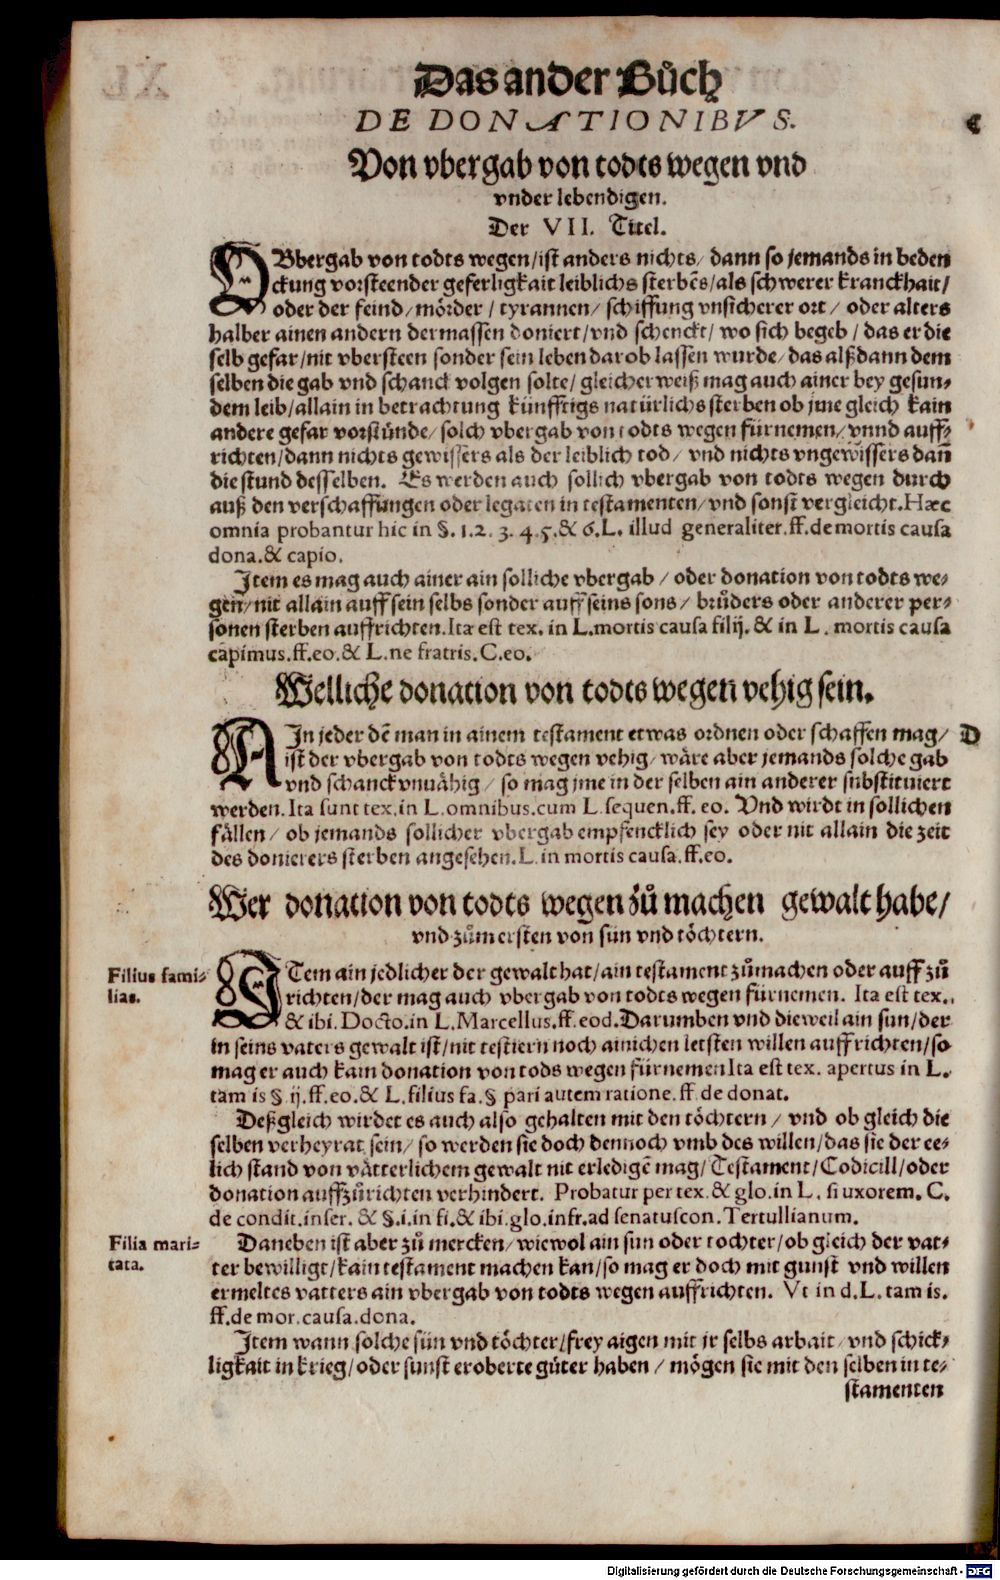 Das ander Bůch
DE DONATIONIBVS.
Von vbergab von todts wegen vnd
vnder lebendigen.
Der VII. Titel.
VBbergab von todts wegen/ist anders nichts/ dann so jemands in beden
ckung vorsteender geferligkait leiblichs sterbẽs/als schwerer kranckhait/
oder der feind/mörder/tyrannen/schiffung vnsicherer ort/ oder alters
halber ainen andern dermassen doniert/vnd schenckt/wo sich begeb/das er die
selb gefar/nit vbersteen sonder sein leben darob lassen wurde/das alßdann dem
selben die gab vnd schanck volgen solte/gleicher weiß mag auch ainer bey gesun-
dem leib/allain in betrachtung künfftigs natürlichs sterben ob jme gleich kain
andere gefar vorstünde/solch vbergab von todts wegen fürnemen/vnnd auff-
richten/dann nichts gewissers als der leiblich tod/ vnd nichts vngewissers dañ
die stund desselben. Es werden auch sollich vbergab von todts wegen durch
auß den verschaffungen oder legaten in testamenten/vnd sonst vergleicht.Hæc
omnia probantur hic in §.1.2.3.4.5.& 6.L. illud generaliter.ff.de mortis causa
dona.& capio.
Item es mag auch ainer ain solliche vbergab/ oder donation von todts we-
gen/nit allain auff sein selbs sonder auff seins sons/ brůders oder anderer per-
sonen sterben auffrichten.Ita est tex. in L.mortis causa filij.& in L. mortis causa
capimus.ff.eo.& L.ne fratris.C.eo.
Welliche donation von todts wegen vehig sein.
AIn jeder dẽ man in ainem testament etwas ordnen oder schaffen mag/
D
ist der vbergab von todts wegen vehig/wäre aber jemands solche gab
vnd schanck vnuähig/ so mag jme in der selben ain anderer substituiert
werden.Ita sunt tex.in L.omnibus.cum L.sequen.ff.eo. Vnd wirdt in sollichen
fällen/ ob jemands sollicher vbergab empfencklich sey oder nit allain die zeit
des donierers sterben angesehen.L.in mortis causa.ff.eo.
Wer donation von todts wegen zů machen gewalt habe/
vnd zům ersten von sün vnd töchtern.
Filius fami-
lias.
ITem ain jedlicher der gewalt hat/ain testament zůmachen oder auff zů
richten/der mag auch vbergab von todts wegen fürnemen. Ita est tex.
& ibi.Docto.in L.Marcellus.ff.eod.Darumben vnd dieweil ain sun/der
in seins vaters gewalt ist/nit testiern noch ainichen letsten willen auffrichten/so
mag er auch kain donation von tods wegen fürnemen Ita est tex. apertus in L.
tam is § ij.ff.eo.& L.filius fa.§ pari autem ratione.ff.de donat.
Deßgleich wirdet es auch also gehalten mit den töchtern/ vnd ob gleich die
selben verheyrat sein/ so werden sie doch dennoch vmb des willen/das sie der ee-
lich stand von vätterlichem gewalt nit erledigẽ mag/Testament/Codicill/oder
donation auffzůrichten verhindert. Probatur per tex.& glo.in L. si uxorem. C.
de condit.inser. & §.i.in fi.& ibi.glo.infr.ad senatuscon.Tertullianum.
Filia mari-
tata.
Daneben ist aber zů mercken/wiewol ain sun oder tochter/ob gleich der vat-
ter bewilligt/kain testament machen kan/so mag er doch mit gunst vnd willen
ermeltes vatters ain vbergab von todts wegen auffrichten. Vt in d.L.tam is.
ff.de mor.causa.dona.
Item wann solche sün vnd töchter/frey aigen mit jr selbs arbait/vnd schick-
ligkait in krieg/oder sunst eroberte güter haben/ mögen sie mit den selben in te-
stamenten
Digitalisierung gefördert durch die Deutsche Forschungsgemeinschaft - DFG